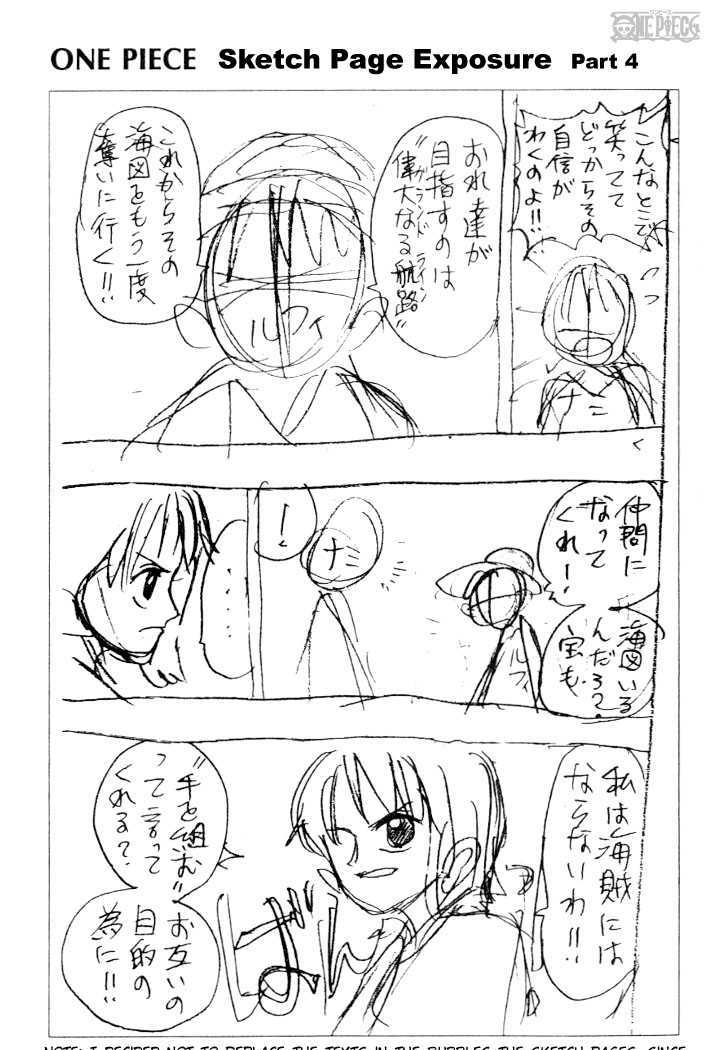 ワンピース
ONE PIECE
ONE PIECE Sketch Page Exposure Part 4
こんなとこで
笑ってて
どっからその
自信が
わくのよ!!
ナミ
おれ達が
目指すのは
"偉大なる航路"
グランドライン
これからその
海図をもう一度
奪いに行く!!
ルフィ
仲間に
なって
くれ!
海図いる
んだろ?
宝も
ルフィ
ナミ
!
・・・・
私は海賊には
ならないわ!!
ばん
"手を組む"
って言って
くれる?
お互いの
目的の
為に!!
NOTE: I DECIDED NOT TO REPLACE THE TEXTS IN THE BUBBLES THE SKETCH PAGES, SINCE